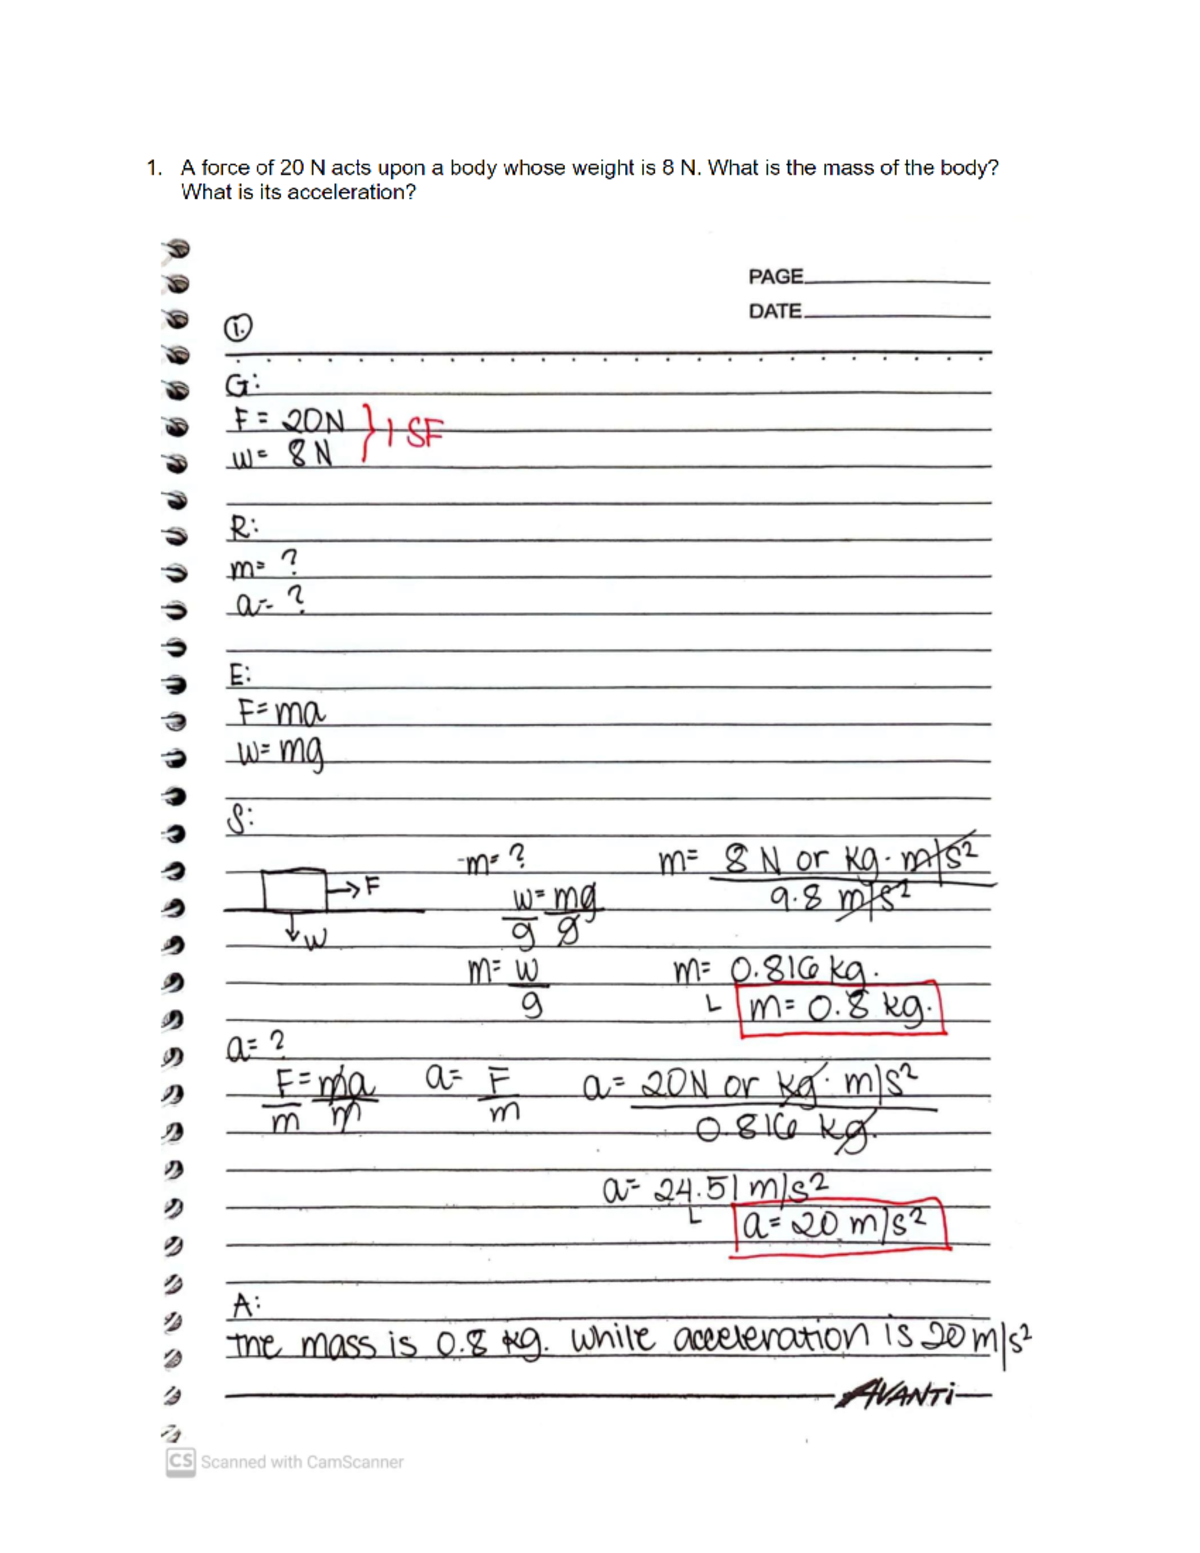 1. A force of 20 N acts upon a body whose weight is 8 N. What is the mass of the body?
What is its acceleration?
PAGE
DATE
1.
G:
F = 20N
W = 8 N
} 1 SF
R:
m= ?
a= ?
E:
F=ma
W=mg
S:
→F
↓W
m= ?
W=mg
g g
m= W
g
m= 8 N or kg·m/s²
9.8 m/s²
m= 0.816 kg.
m= 0.8 kg.
a= ?
F=ma
m m
a= F
m
a= 20N or kg·m/s²
0.816 kg.
a= 24.51 m/s²
a= 20 m/s²
A:
The mass is 0.8 kg. while acceleration is 20 m/s²
AVANTi
CS Scanned with CamScanner